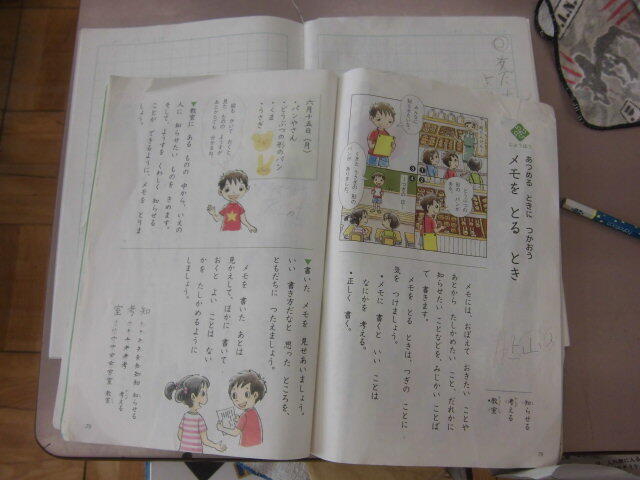 じょうほう
あつめる ときに つかおう
メモを とる とき
メモには、おぼえて おきたい ことや
あとから たしかめたい こと、だれかに
知らせたい ことなどを、みじかい ことば
で 書きます。
メモを とる ときは、つぎの ことに
気を つけましょう。
・メモに 書くと いい ことは
なにかを 考える。
・正しく 書く。
知らせる
考える
教室
六月十五日(月)
・パンやさん
・どうぶつの形のパン
・くま
・うさぎ
▼教室に ある ものの 中から、いえの
人に 知らせたい ものを きめます。
そして、ようすを くわしく 知らせる
ことが できるように、メモを とりま
しょう。
▼書いた メモを 見せあいましょう。
いい 書き方だなと 思った ところを、
ともだちに つたえましょう。
メモを 書いた あとは
見かえして、ほかに 書いて
おくと よい ことは ない
かを たしかめるように
しましょう。
知
知らせる
考
考える
室
教室